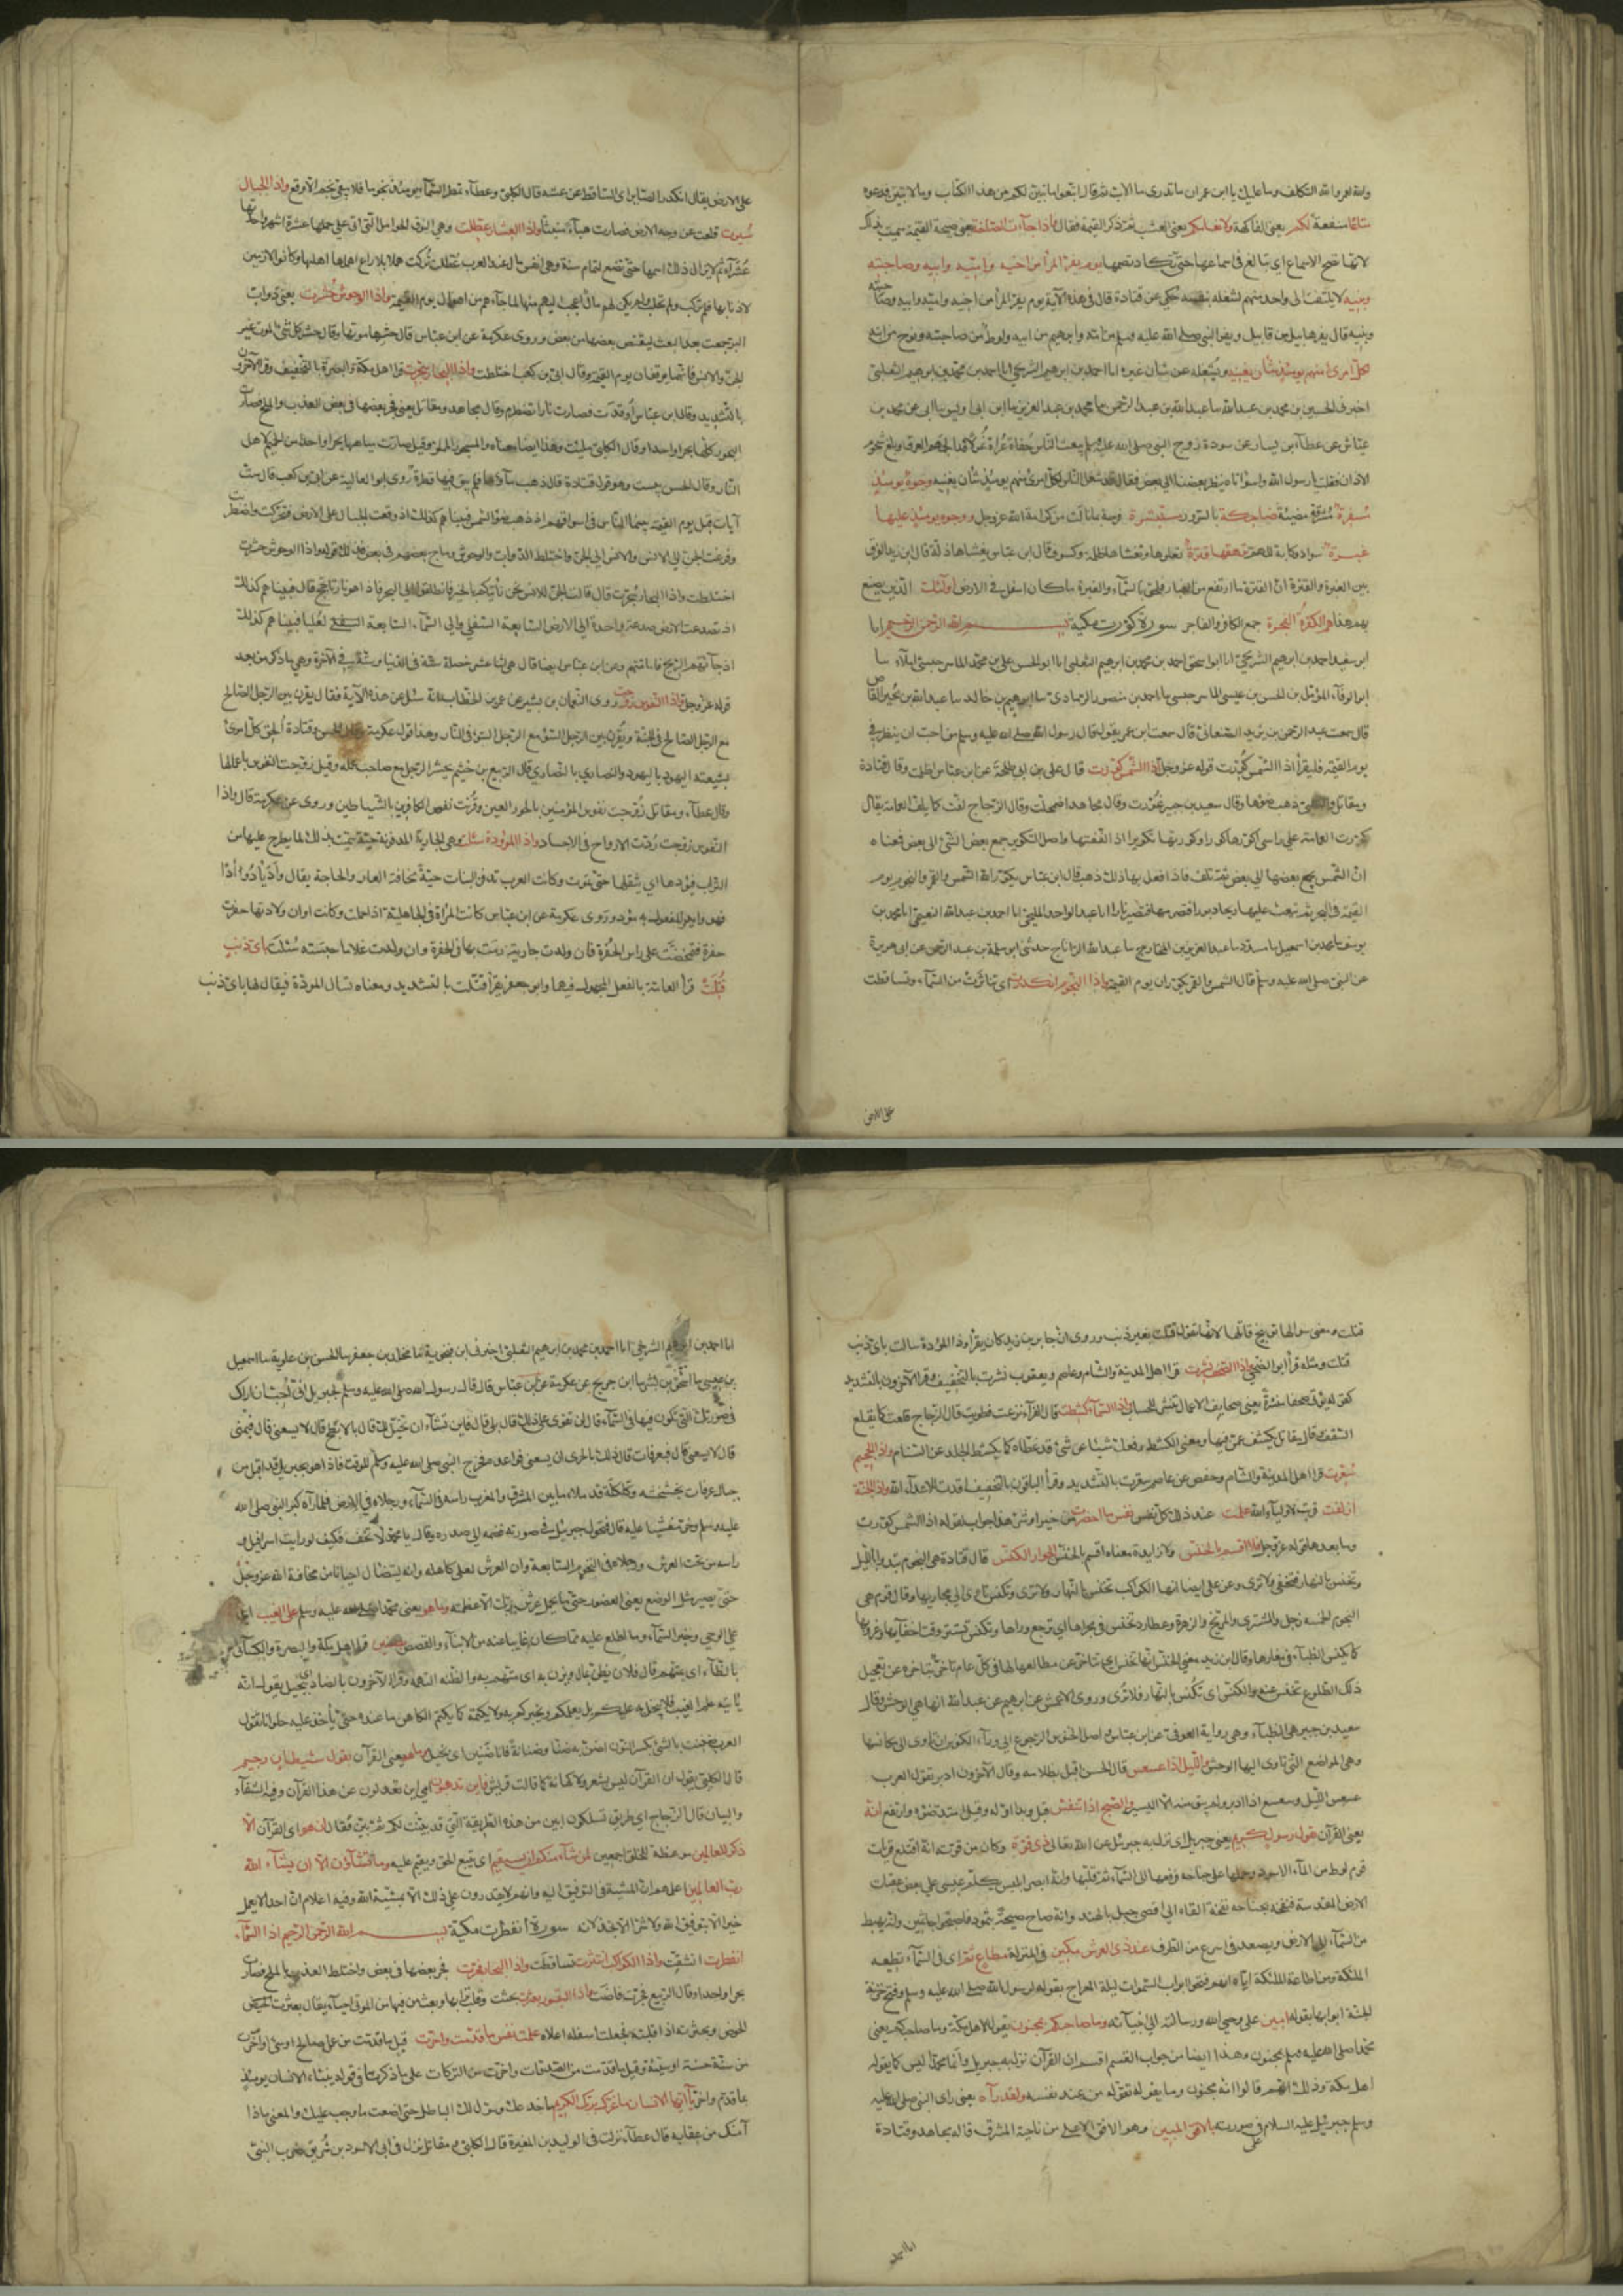 وانه لعمر الله التكلف وما عليك يا ابن عمر ان ما تدرى ما الاب ثم قال اتبعوا ما تبين لكم من هذا الكتاب وما لا تبين فدعوه
متاعا منفعة لكم يعنى الفاكهة ولانعامكم يعنى العشب ثم ذكر القيمة فقال فاذا جاءت الصاخة يعنى صيحة القيمة سميت بذلك
لانها تصخ الاسماع اى تبالغ فى اسماعها حتى تكاد تصمها يوم يفر المرء من اخيه وامه وابيه وصاحبته
وبنيه لا يلتفت الى واحد منهم لشغله بنفسه حكى عن قتادة قال فى هذه الآية يوم يفر المرء من اخيه وامه وابيه وصاحبته
وبنيه قال يفر هابيل من قابيل ويفر النبى صلى الله عليه وسلم من امه وابرهيم من ابيه ولوط من صاحبته ونوح من ابنه
لكل امرئ منهم يومئذ شان يغنيه يشغله عن شان غيره انا احمد بن ابرهيم الشريحى انا احمد بن محمد بن ابرهيم الثعلبى
اخبرنى الحسين بن محمد بن عبدالله سا عبدالله بن عبدالرحمن سا محمد بن عبدالعزيز سا ابن ابى اويس سا ابى عن محمد بن
عياش عن عطاء بن يسار عن سودة زوج النبى صلى الله عليه وسلم يبعث الناس حفاة عراة غرلا قد الجمهم العرق وبلغ شحوم
الاذان فقلت يا رسول الله واسوأتاه ينظر بعضنا الى بعض فقال قد شغل الناس لكل امرئ منهم يومئذ شأن يغنيه وجوه يومئذ
مسفرة مشرقة مضيئة ضاحكة بالسرور مستبشرة فرحة بما نالت من كرامة الله عز وجل ووجوه يومئذ عليها
غبرة سواد وكابة ترهقها قترة تعلوها وتغشاها ظلمة وكسوف قال ابن عباس يغشاها ذلة قال ابن زيد الفرق
بين الغبرة والقترة ان القترة ما ارتفع من الغبار فلحق بالسماء والغبرة ما كان اسفل فى الارض اولئك الذين يصنع
بهم هذا هم الكفرة الفجرة جمع الكافر والفاجر سورة كورت مكية بسم الله الرحمن الرحيم انا
ابو سعيد احمد بن ابرهيم الشريحى انا ابو اسحق احمد بن محمد بن ابرهيم الثعلبى انا ابو الحسن على بن محمد
ابو الوفاء المؤمل بن الحسن بن عيسى سا احمد بن منصور الرمادى سا ابرهيم بن خالد سا عبدالله بن بحير القاص
قال سمعت عبدالرحمن بن يزيد الصنعانى قال سمعت ابن عمر يقول قال رسول الله صلى الله عليه وسلم من احب ان ينظر فى
يوم القيمة فليقرأ اذا الشمس كورت قوله عز وجل اذا الشمس كورت قال على بن ابى طلحة عن ابن عباس اظلمت وقال قتادة
ومقاتل والكلبى ذهب ضوها وقال سعيد بن جبير غورت وقال مجاهد اضمحلت وقال الزجاج لفت كما يلف العمامة يقال
كورت العمامة على راسى اكورها كورا وكورتها تكويرا اذا لففتها واصل التكوير جمع بعض الشئ الى بعض فمعناه
ان الشمس يجمع بعضها الى بعض ثم تلف فاذا فعل بها ذلك ذهب قال ابن عباس يكور الله الشمس والقمر والنجوم يوم
القيمة فى البحر ثم يبعث عليها ريحا دبورا فتضربها فتصير نارا انا عبدالواحد المليحى انا احمد بن عبدالله النعيمى انا محمد بن
يوسف سا محمد بن اسمعيل سا مسدد سا عبدالعزيز بن المختار سا عبدالله الداناج حدثنى ابو سلمة بن عبدالرحمن عن ابى هريرة
عن النبى صلى الله عليه وسلم قال الشمس والقمر يكوران يوم القيمة واذا النجوم انكدرت اى تناثرت من السماء وتساقطت
على الارض
على الارض يقال انكدر الطاير اى سقط عن عشه قال الكلبى وعطاء تمطر السماء يومئذ نجوما فلا يبقى نجم الا وقع واذا الجبال
سيرت قلعت عن وجه الارض فصارت هباء منبثا واذا العشار عطلت وهى النوق الحوامل التى اتى على حملها عشرة اشهر واحدتها
عشراء ثم لا يزال ذلك اسمها حتى تضع لتمام سنة وهى انفس مال عند العرب عطلت تركت هملا بلا راع اهملها اهلها وكانوا لازمين
لاذنابها فلم تركب ولم تحلب ولم يكن لهم مال اعجب اليهم منها لما جاءهم من اهوال يوم القيمة واذا الوحوش حشرت يعنى دواب
البر جمعت بعد البعث ليقتص بعضها من بعض وروى عكرمة عن ابن عباس قال حشرها موتها وقال حشر كل شئ الموت غير
الجن والانس فانهما يوقفان يوم القيمة وقال ابى بن كعب اختلطت واذا البحار سجرت قرا اهل مكة والبصرة بالتخفيف وقرا الآخرون
بالتشديد وقال ابن عباس أوقدت فصارت نارا تضطرم وقال مجاهد ومقاتل يعنى فجر بعضها فى بعض العذب والملح فصارت
البحور كلها بحرا واحدا وقال الكلبى ملئت وهذا ايضا معناه والمسجور المملو وقيل صارت مياهها بحرا واحدا من الحميم لاهل
النار وقال الحسن يبست وهو قول قتادة قال ذهب ماؤها فلم يبق فيها قطرة روى ابو العالية عن ابى بن كعب قال ست
آيات قبل يوم القيمة بينما الناس فى اسواقهم اذ ذهب ضوء الشمس فبينما هم كذلك اذ وقعت الجبال على الارض فتحركت واضطربت
وفزعت الجن الى الانس والانس الى الجن واختلط الدواب والوحوش وماج بعضهم فى بعض فذلك قوله واذا الوحوش حشرت
اختلطت واذا البحار سجرت قال قالت الجن للانس نحن نأتيكم بالخبر فانطلقوا الى البحر فاذا هو نار تأجج قال فبينما هم كذلك
اذ تصدعت الارض صدعة واحدة الى الارض السابعة السفلى والى السماء السابعة العليا فبينما هم كذلك
اذ جاءتهم الريح فاماتتهم وعن ابن عباس ايضا قال هى اثنا عشر خصلة ستة فى الدنيا وستة فى الآخرة وهى ما ذكر من بعد
قوله عز وجل واذا النفوس زوجت روى النعمان بن بشير عن عمر بن الخطاب انه سئل عن هذه الآية فقال يقرن بين الرجل الصالح
مع الرجل الصالح فى الجنة ويقرن بين الرجل السوء مع الرجل السوء فى النار وهذا قول عكرمة وقال الحسن وقتادة الحق كل امرئ
بشيعته اليهود باليهود والنصارى بالنصارى قال الربيع بن خثيم يحشر الرجل مع صاحب عمله وقيل زوجت النفوس باعمالها
وقال عطاء ومقاتل زوجت نفوس المؤمنين بالحور العين وقرنت نفوس الكافرين بالشياطين وروى عن عكرمة قال واذا
النفوس زوجت ردت الارواح فى الاجساد واذا الموؤدة سئلت وهى الجارية المدفونة حية سميت بذلك لما يطرح عليها من
التراب فيؤدها اى يثقلها حتى تموت وكانت العرب تدفن البنات حية مخافة العار والحاجة يقال وأد يئد وأدا
فهو وايد والمفعول به موؤد وروى عكرمة عن ابن عباس كانت المرأة فى الجاهلية اذا حملت وكانت اوان ولادتها حفرت
حفرة فتمخضت على راس الحفرة فان ولدت جارية رمت بها فى الحفرة وان ولدت غلاما حبسته سئلت باى ذنب
قتلت قرأ العامة بالفعل المجهول فيها وابو جعفر يقرأ قتلت بالتشديد ومعناه تسال الموؤدة فيقال لها باى ذنب
قتلت ومعنى سوالها توبيخ قاتلها لانها تقول قتلت بغير ذنب وروى ان جابر بن زيد كان يقرأ واذا الموؤدة سالت باى ذنب
قتلت ومثله قرأ ابو الضحى واذا الصحف نشرت قرا اهل المدينة والشام وعاصم ويعقوب نشرت بالتخفيف وقرا الآخرون بالتشديد
كقوله يؤتى صحفا منشرة يعنى صحايف الاعمال تنشر للحساب واذا السماء كشطت قال الفراء نزعت فطويت قال الزجاج قلعت كما يقلع
السقف قال مقاتل يكشف عمن فيها ومعنى الكشط رفعك شيئا عن شئ قد غطاه كما يكشط الجلد عن السنام واذا الجحيم
سعرت قرا اهل المدينة والشام وحفص عن عاصم سعرت بالتشديد وقرأ الباقون بالتخفيف اوقدت لاعداء الله واذا الجنة
ازلفت قربت لاولياء الله علمت عند ذلك كل نفس نفس ما احضرت من خير او شر هذا جواب لقوله اذا الشمس كورت
وما بعدها قوله عز وجل فلا اقسم بالخنس ولا زايدة معناه اقسم بالخنس الجوار الكنس قال قتادة هى النجوم تبدو بالليل
وتخنس بالنهار فتخفى ولا ترى وعن على ايضا انها الكواكب تخنس بالنهار ولا ترى وتكنس تاوى الى مجاريها وقال قوم هى
النجوم الخمسة زحل والمشترى والمريخ والزهرة وعطارد تخنس فى مجراها اى ترجع وراها وتكنس تستتر وقت اختفايها وغروبها
كما تكنس الظباء فى مغارها وقال ابن زيد معنى الخنس انها تخنس اى تتاخر عن مطالعها لها فى كل عام تاخر تتاخره عن تعجيل
ذلك الطلوع تخنس عنه والكنس اى تكنس بالنهار فلا ترى وروى الاعمش عن ابرهيم عن عبدالله انها هى الوحش وقال
سعيد بن جبير هى الظباء وهى رواية العوفى عن ابن عباس واصل الخنوس الرجوع الى وراء والكنوس ان تاوى الى مكانسها
وهى المواضع التى تاوى اليها الوحش والليل اذا عسعس قال الحسن اقبل بظلامه وقال الآخرون ادبر تقول العرب
عسعس الليل وسعسع اذا ادبر ولم يبق منه الا اليسير والصبح اذا تنفس اقبل وبدا اوله وقيل امتد ضوه وارتفع انه
يعنى القرآن لقول رسول كريم يعنى جبريل اى نزل به جبرئيل عن الله تعالى ذى قوة وكان من قوته انه اقتلع قريات
قوم لوط من الماء الاسود وحملها على جناحه فرفعها الى السماء ثم قلبها وانه ابصر ابليس يكلم عيسى على بعض عقاب
الارض المقدسة فنفخه بجناحه نفخة القاه الى اقصى جبل بالهند وانه صاح صيحة بثمود فاصبحوا جاثمين وانه يهبط
من السماء الى الارض ويصعد فى اسرع من الطرف عند ذى العرش مكين فى المنزلة مطاع ثم اى فى السماء تطيعه
الملئكة ومن طاعة الملئكة اياه انهم فتحوا ابواب السموات ليلة المعراج بقوله لرسول الله صلى الله عليه وسلم وفتح خزنة
الجنة ابوابها بقوله امين على وحى الله ورسالته الى انبيائه وما صاحبكم بمجنون يقول لاهل مكة وما صاحبكم يعنى
محمدا صلى الله عليه وسلم بمجنون وهذا ايضا من جواب القسم اقسم ان القرآن نزل به جبريل وان محمدا ليس كما يقوله
اهل مكة وذلك انهم قالوا انه مجنون وما يقول له تقوله من عند نفسه ولقد رآه يعنى راى النبى صلى الله عليه
وسلم جبرئيل عليه السلام فى صورته بالافق المبين وهو الافق الاعلى من ناحية المشرق قاله مجاهد وقتادة
انا احمد
انا احمد بن ابرهيم الشريحى انا احمد بن محمد بن ابرهيم الثعلبى اخبرنى ابن فنجويه سا مخلد بن جعفر سا الحسن بن علويه سا اسمعيل
بن عيسى سا اسحق بن بشر سا ابن جريج عن عكرمة عن ابن عباس قال قال رسول الله صلى الله عليه وسلم لجبريل انى احب ان اراك
فى صورتك التى تكون فيها فى السماء قال لن تقوى على ذلك قال بلى قال فاين تشاء ان تخيل لك قال بالابطح قال لا يسعنى قال فبمنى
قال لا يسعنى قال فبعرفات قال ذلك بالحرى ان يسعنى فواعده فخرج النبى صلى الله عليه وسلم للوقت فاذا هو بجبريل قد اقبل من
جبال عرفات بخشخشة وكلكلة قد ملا ما بين المشرق والمغرب راسه فى السماء ورجلاه فى الارض فلما رآه كبر النبى صلى الله
عليه وسلم وخر مغشيا عليه قال فتحول جبريل فى صورته فضمه الى صدره وقال يا محمد لا تخف فكيف لو رايت اسرافيل
راسه من تحت العرش ورجلاه فى التخوم السابعة وان العرش لعلى كاهله وانه ليتضائل احيانا من مخافة الله عز وجل
حتى يصير مثل الوصع يعنى العصفور حتى ما يحمل عرش ربك الا عظمته وما هو يعنى محمدا صلى الله عليه وسلم على الغيب اى
على الوحى وخبر السماء وما اطلع عليه مما كان غايبا عنه من الانباء والقصص بضنين قرا اهل مكة والبصرة والكسائى
بالظاء اى بمتهم يقال فلان يظن بمال ويزن به اى متهم به والظنة التهمة وقرا الآخرون بالضاد اى ببخيل يقول انه
يأتيه علم الغيب فلا يبخل به عليكم بل يعلمكم ويخبركم به ولا يكتمه كما يكتم الكاهن ما عنده حتى يأخذ عليه حلوانا تقول
العرب ضننت بالشئ بكسر النون اضن به ضنا وضنانة فانا ضنين اى بخيل وما هو يعنى القرآن بقول شيطان رجيم
قال الكلبى يقول ان القرآن ليس بشعر ولا كهانة كما قالت قريش فاين تذهبون اى اين تعدلون عن هذا القرآن وفيه الشفاء
والبيان قال الزجاج اى طريق تسلكون ابين من هذه الطريقة التى قد بينت لكم ثم بين فقال ان هو اى القرآن الا
ذكر للعالمين موعظة للخلق اجمعين لمن شاء منكم ان يستقيم اى يتبع الحق ويقيم عليه وما تشاؤن الا ان يشاء الله
رب العالمين اعلمهم ان المشية فى التوفيق اليه وانهم لا يقدرون على ذلك الا بمشية الله وفيه اعلام ان احدا لا يعمل
خيرا الا بتوفيق الله ولا شرا الا بخذلانه سورة انفطرت مكية بسم الله الرحمن الرحيم اذا السماء
انفطرت انشقت واذا الكواكب انتثرت تساقطت واذا البحار فجرت فجر بعضها فى بعض واختلط العذب بالملح فصارت
بحرا واحدا وقال الربيع فجرت فاضت واذا القبور بعثرت بحثت وقلب ترابها وبعث من فيها من الموتى احياء يقال بعثرت الحوض
وبحثرته اذا قلبته فجعلت اسفله اعلاه علمت نفس ما قدمت واخرت قيل ما قدمت من عمل صالح او سئ واخرت
من سنة حسنة او سيئة وقيل ما قدمت من الصدقات واخرت من التركات على ما ذكرنا فى قوله ينبأ الانسان يومئذ
بما قدم واخر يا أيها الانسان ما غرك بربك الكريم ما خدعك وسول لك الباطل حتى اضعت ما وجب عليك والمعنى ماذا
آمنك من عقابه قال عطاء نزلت فى الوليد بن المغيرة قال الكلبى ومقاتل نزل فى ابى الاسود بن شريق ضرب النبى